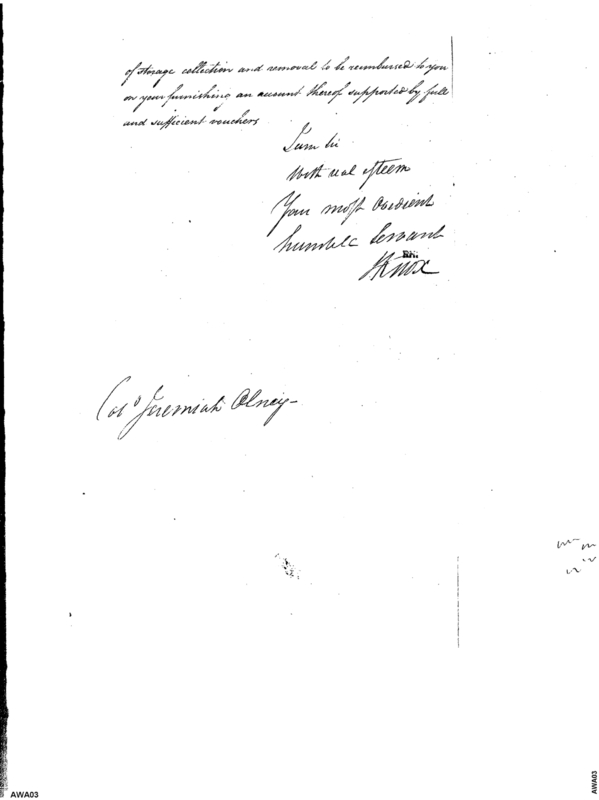 of storage collection and removal to be reimbursed to you
on your furnishing an account thereof supported by full
and sufficient vouchers
I am Sir
With real esteem
Your most Obedient
humble Servant
RHi
HKnox
Colº Jeremiah Olney-
AWA03
AWA03